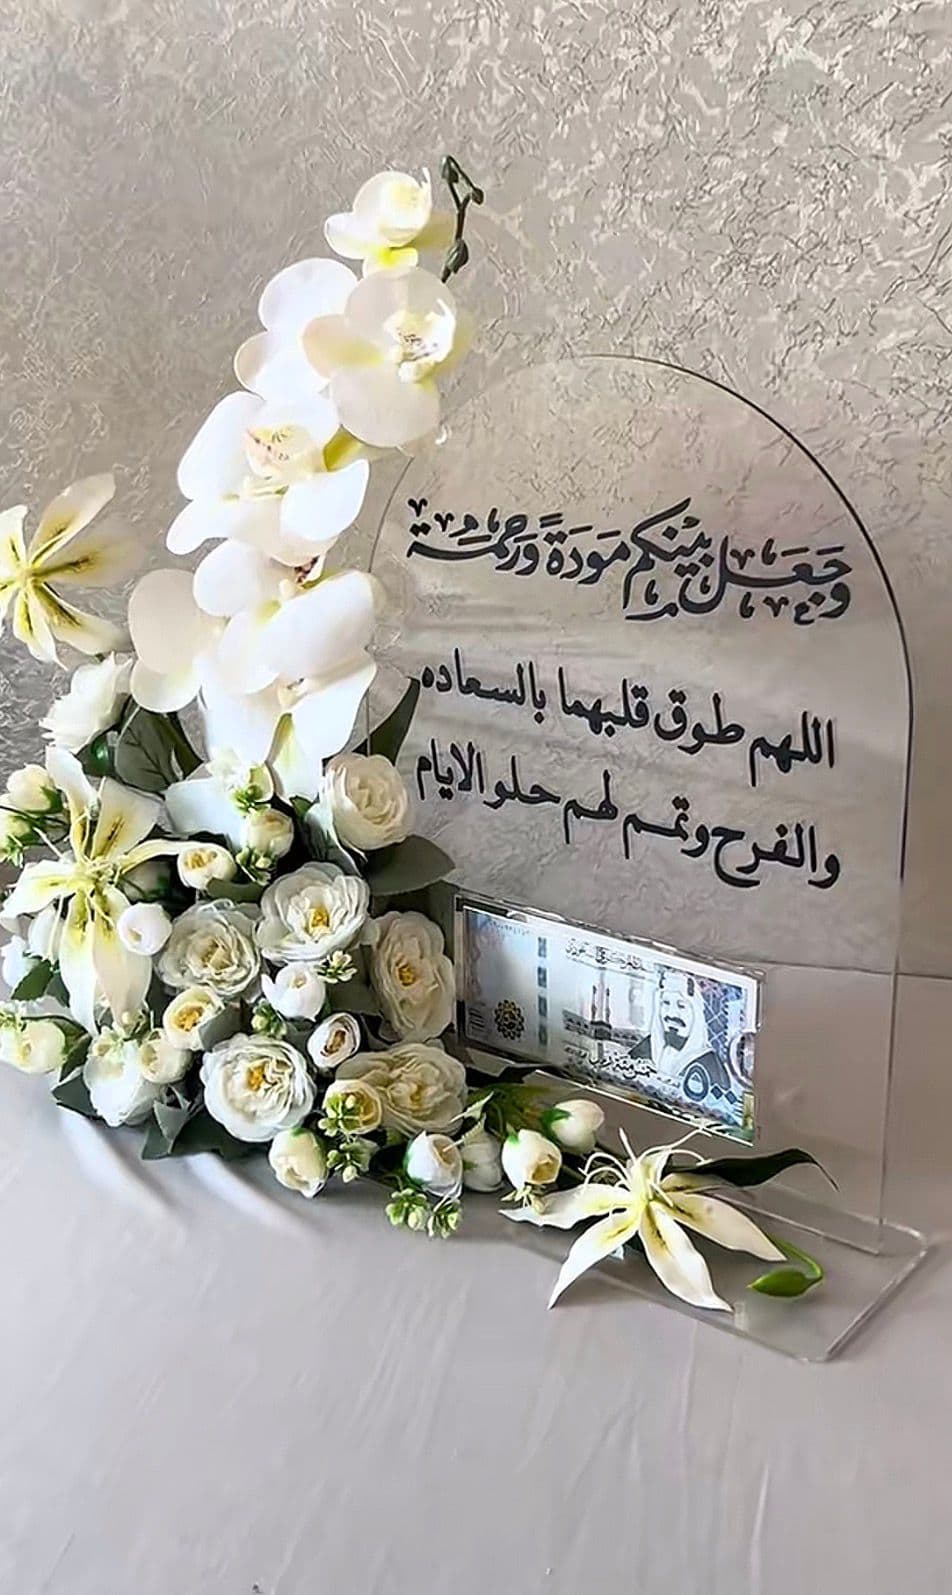 وجعل بينكم مودة ورحمة
اللهم طوق قلبهما بالسعاده
والفرح وتمم لهم حلو الايام
خمس مئة ريال
٥٠٠